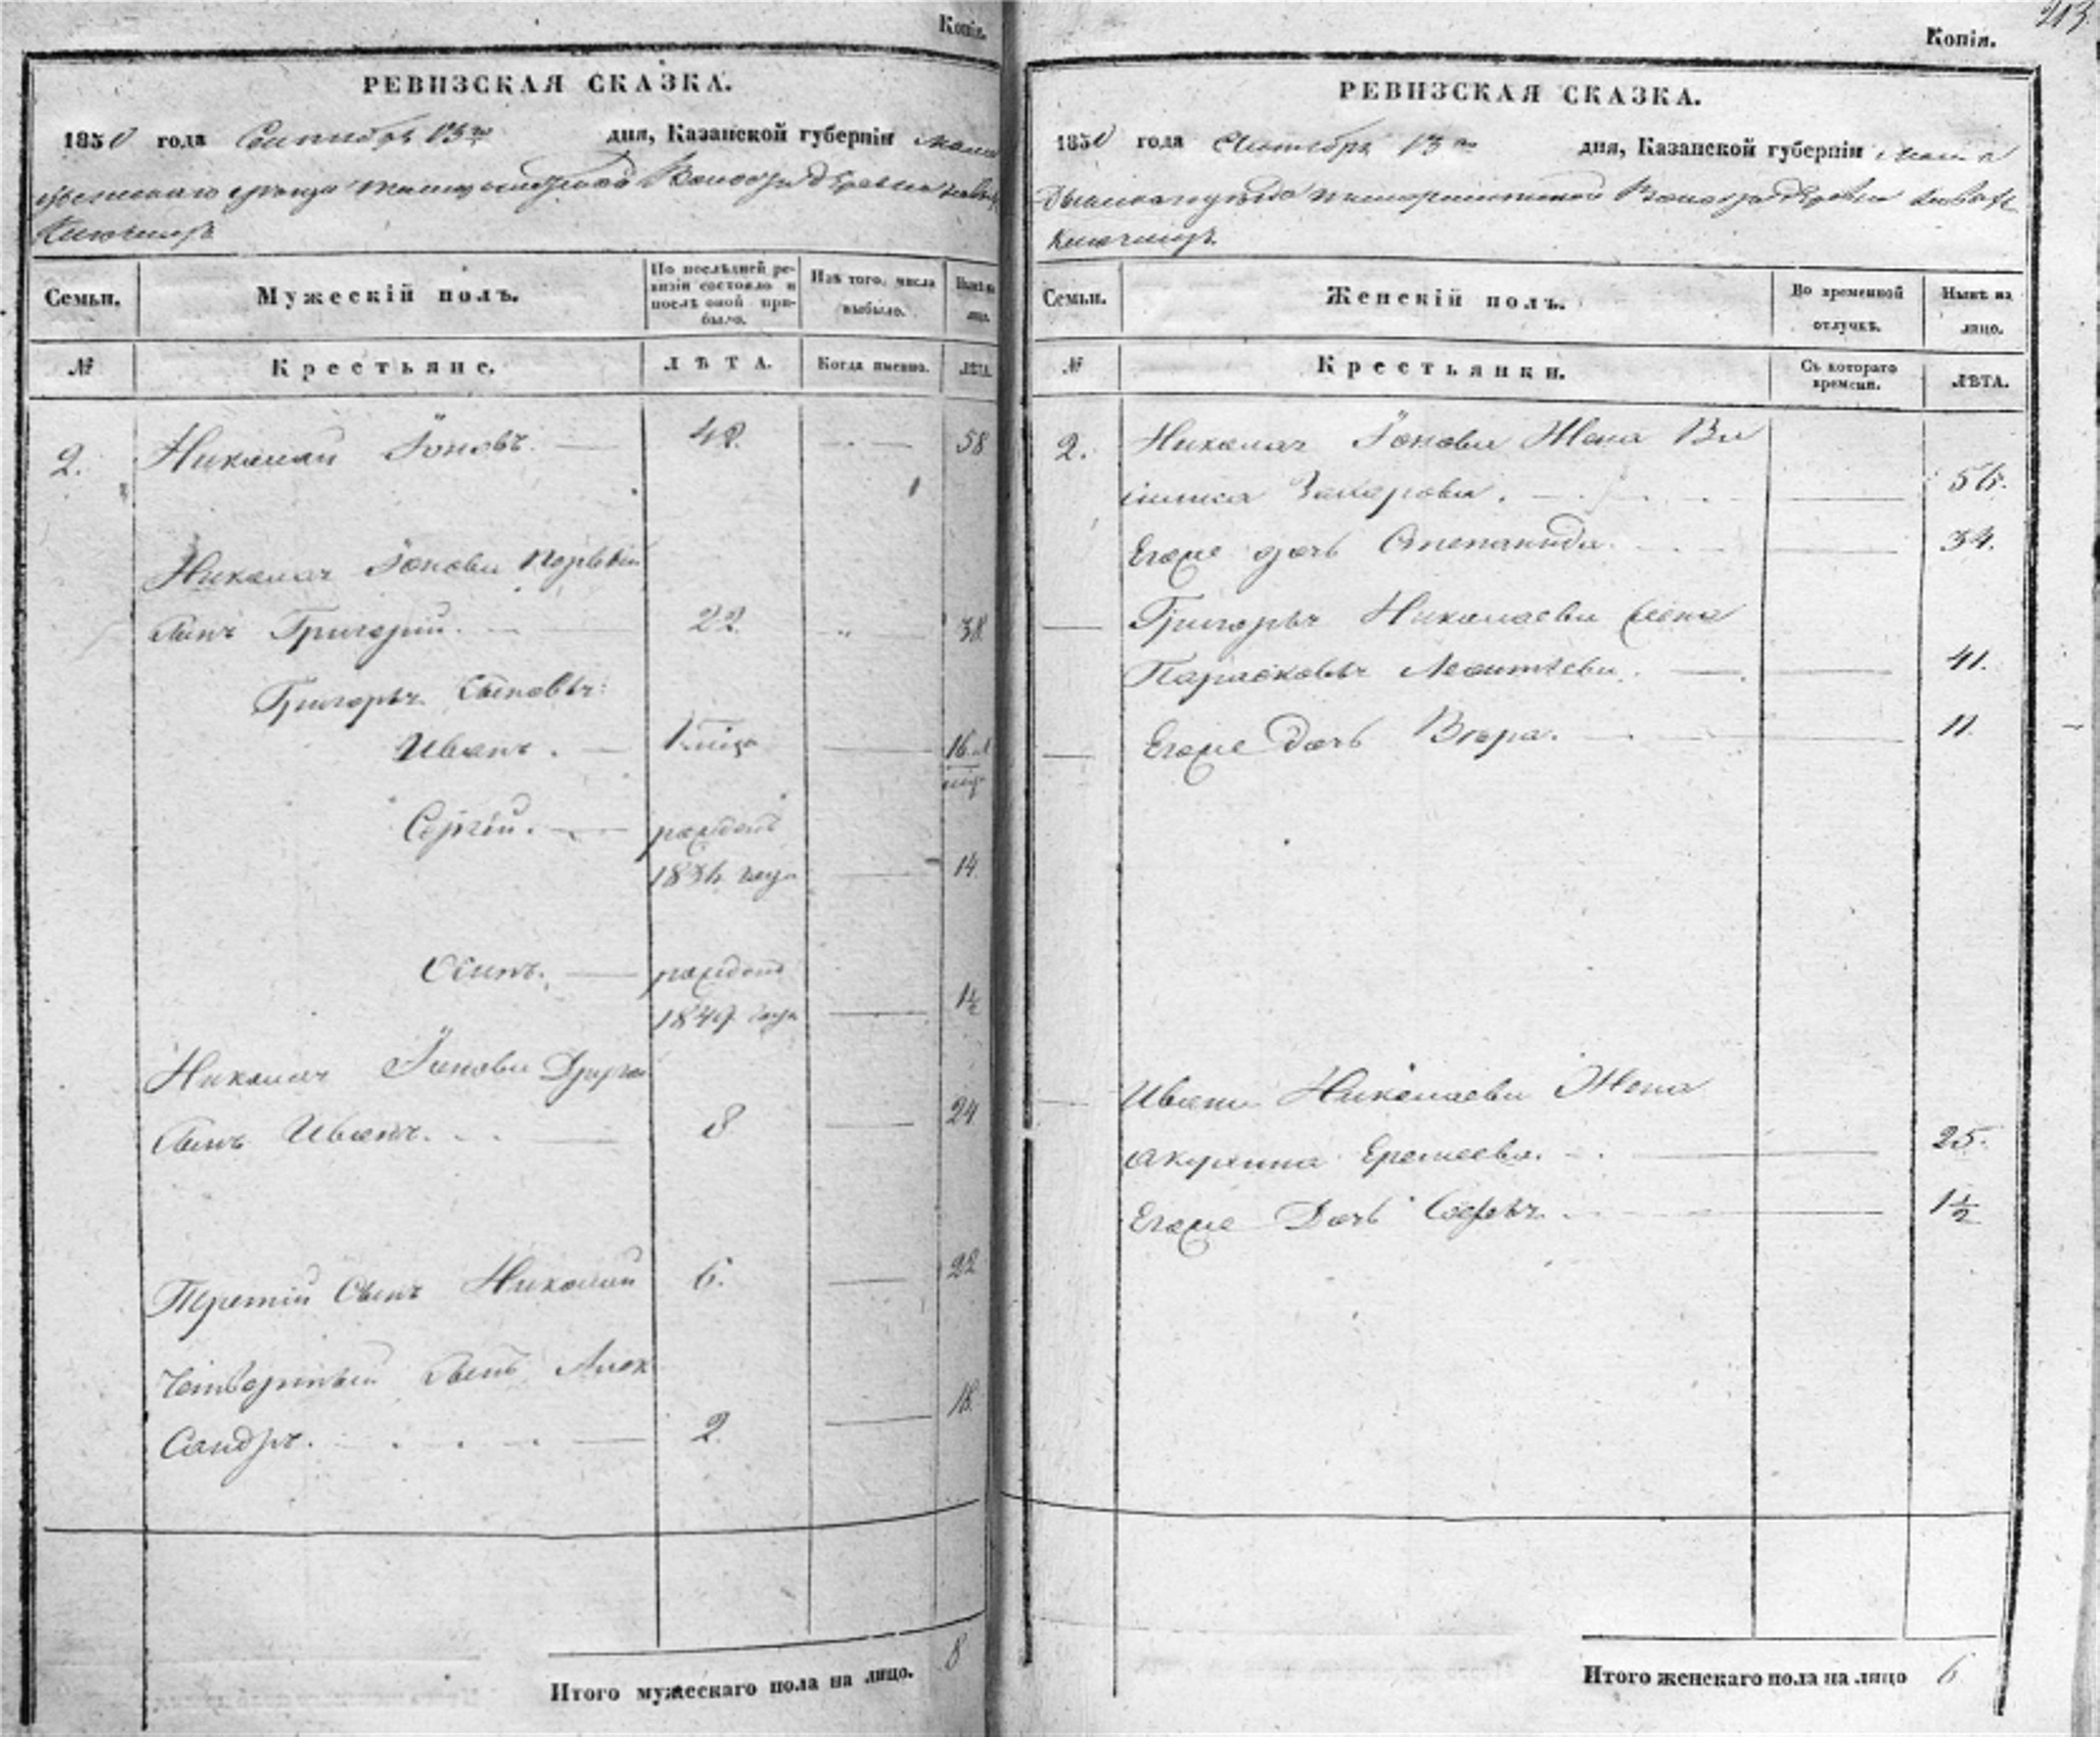 Копія.
РЕВИЗСКАЯ СКАЗКА.
1850 года Сентября 13го дня, Казанской губерніи Мама
дышскаго уезда Волости деревни Новыхъ
Ключищъ
Семьи.
Мужескій полъ.
По послѣдней ре-
визіи состояло и
послѣ оной при-
было.
Изъ того числа
выбыло.
Нынѣ на
лицо.
№
Крестьяне.
ЛѢТА.
Когда именно.
ЛѢТА.
2. Николай Іоновъ. 42. 58
Николая Іонова первый
сынъ Григорій. 22. " 38
Григорья Сыновья:
Иванъ. 1 16
Сергій. рожденъ
1836 года 14
Осипъ. рожденъ
1849 года 1½
Николая Іонова Другой
Сынъ Иванъ. 8 24
Третій Сынъ Николай 6. 22
Четвертый Сынъ Алек
Сандръ. 2. 18
Итого мужескаго пола на лицо. 8
213
Копія.
РЕВИЗСКАЯ СКАЗКА.
1850 года Сентября 13го дня, Казанской губерніи Мама
дышскаго уезда Волости деревни Новыхъ
Ключищъ
Семьи.
Женскій полъ.
Во временной
отлучкѣ.
Нынѣ на
лицо.
№
Крестьянки.
Съ котораго
времени.
ЛѢТА.
2. Николая Іонова Жена Ва
силиса Захарова. 56.
Егоже дочь Степанида. 34.
Григорья Николаева Жена
Парасковья Леонтьева. 41.
Егоже Дочь Вѣра. 11.
Ивана Николаева Жена
Акулина Еремеева. 25.
Егоже Дочь Софья. 1½
Итого женскаго пола на лицо 6